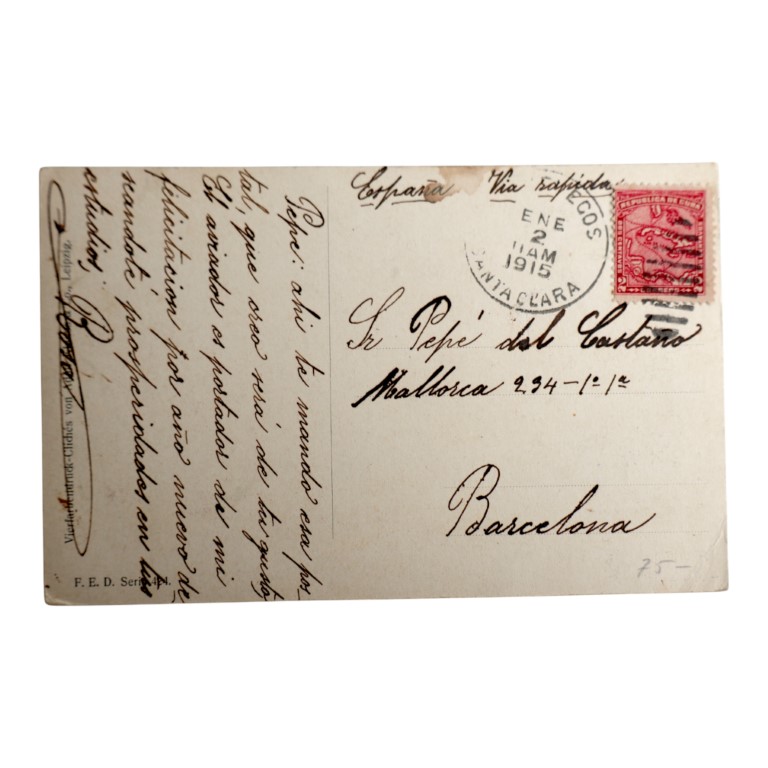 España Via rapida.
EGOS
ENE
2
11AM
1915
SANTA CLARA
REPUBLICA DE CUBA
Sr Pepé del Castaño
Mallorca 234-1º 1ª
Barcelona
75-
Pepe: ahi te mando esa pos
tal, que creo será de tu gusto,
El aviador es portador de mi
felicitacion por año nuevo de
seandote prosperidades en tus
estudios.
Vierfarbendruck-Clichés von Leipzig.
F. E. D. Serie